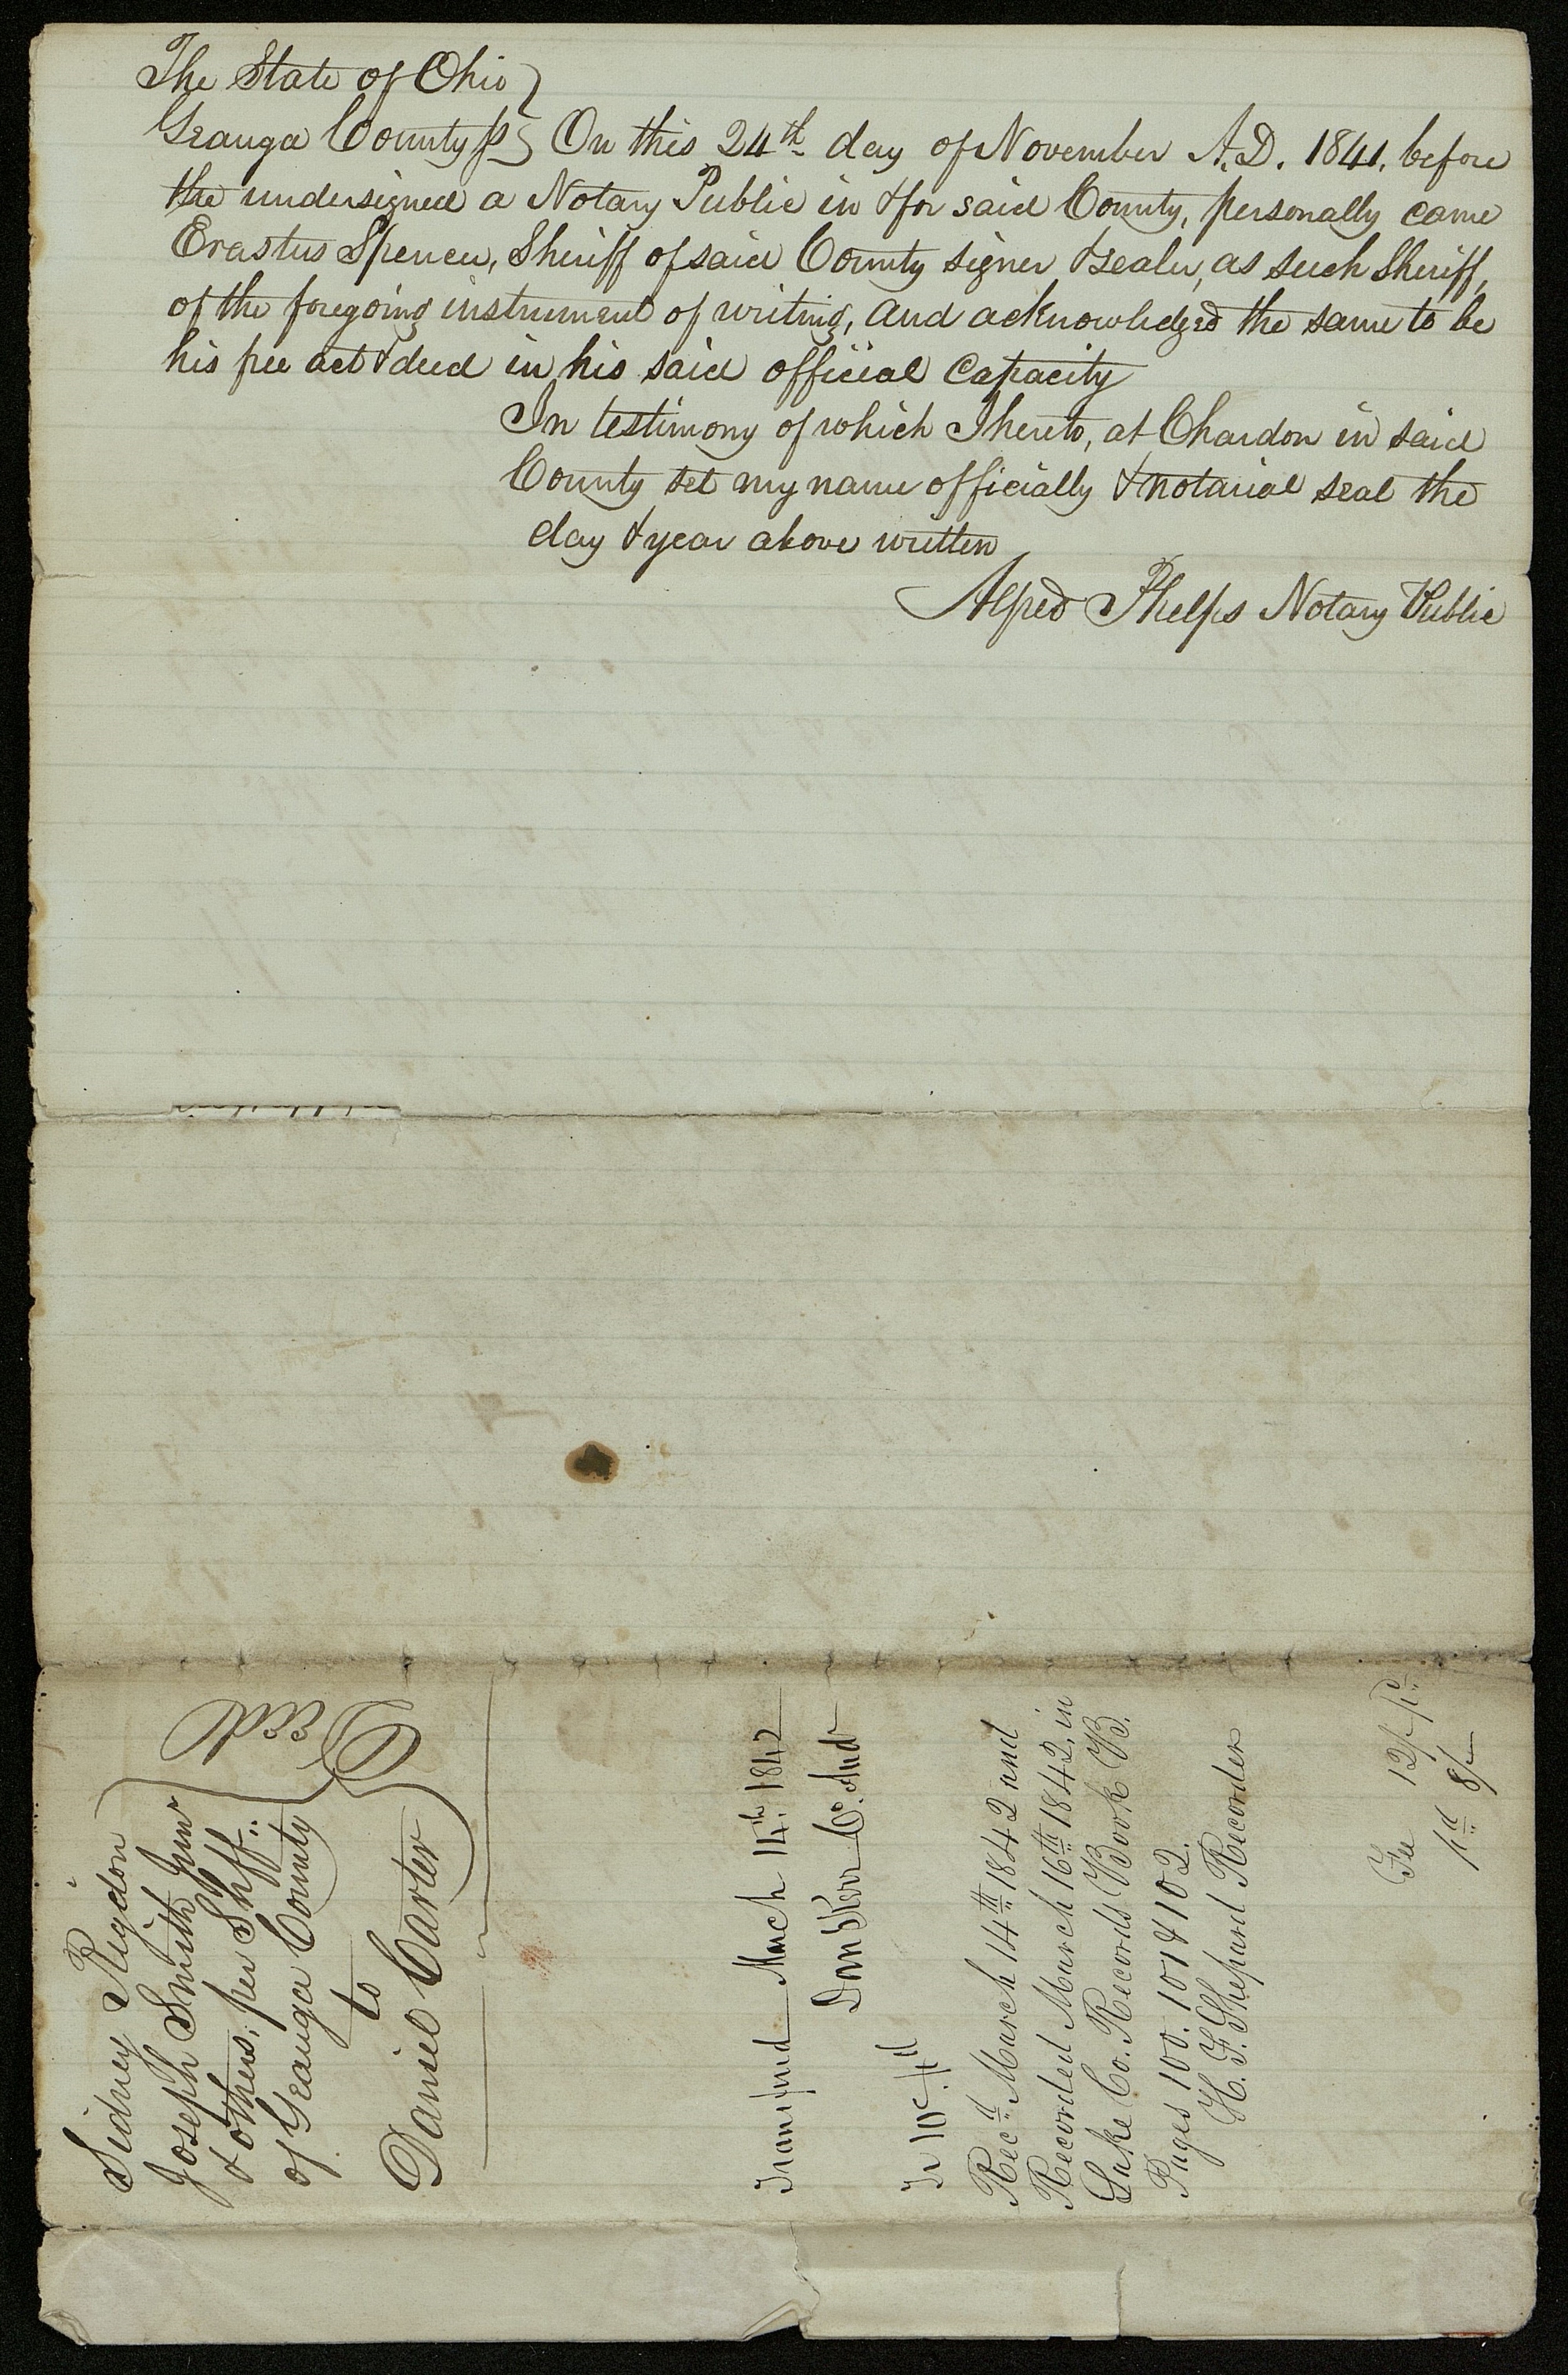 The State of Ohio }
Geauga County ss } On this 24th day of November A.D. 1841, before
the undersigned a Notary Public in & for said County, personally came
Erastus Spencer, Sheriff of said County signer & sealer, as such Sheriff,
of the foregoing instrument of writing, and acknowledged the same to be
his free act & deed in his said official capacity
In testimony of which I hereto, at Chardon in said
County set my name officially & notarial seal the
day & year above written
Alfred Phelps Notary Public
Sidney Rigdon
Joseph Smith Junr
& others, per Shff..
of Geauga County
to
Daniel Carter
Deed
Transferred March 14th 1842
Dan Kerr Co. Audr
Tr 10c pd
Recd March 14th 1842 and
Recorded March 16th 1842, in
Lake Co. Records Book B.
Pages 100. 101 & 102.
H. F. Shepard Recorder
Fee 12/- pd
pd 8/-